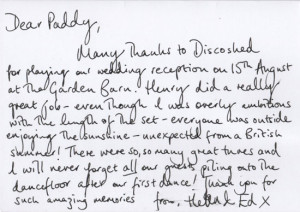 Dear Paddy,
Many Thanks to Discoshed
for playing our wedding reception on 15th August
at The Garden Barn. Henry did a really
great job - even though I was overly ambitious
with the length of the set - everyone was outside
enjoying the sunshine - unexpected from a British
summer! There were so, so many great tunes and
I will never forget all our guests piling onto the
dancefloor after our first dance! Thank you for
such amazing memories from, & Ed X